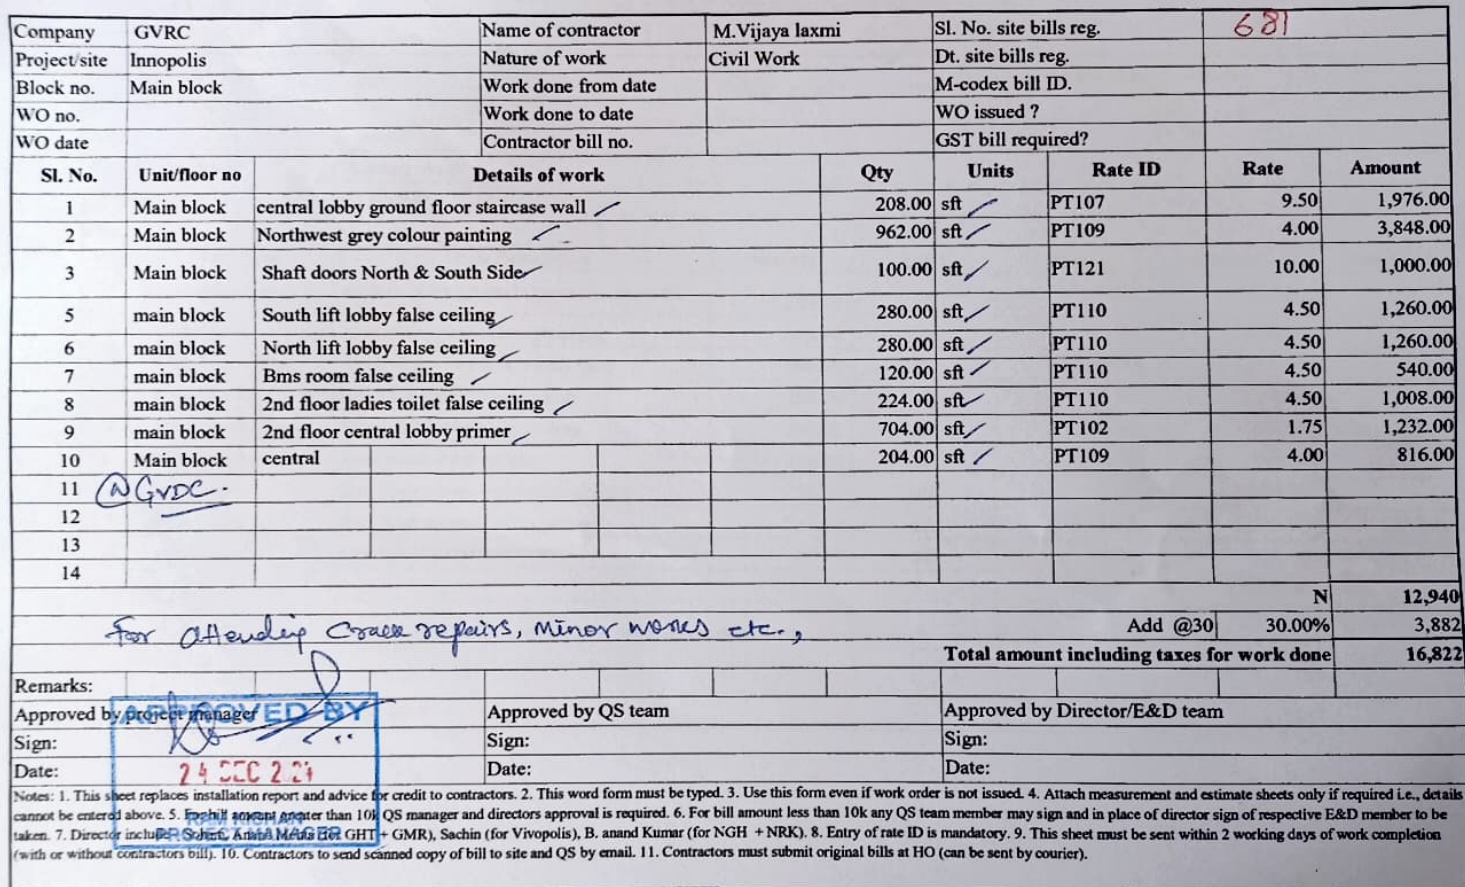 Company GVRC Name of contractor M.Vijaya laxmi Sl. No. site bills reg. 681
Project/site Innopolis Nature of work Civil Work Dt. site bills reg.
Block no. Main block Work done from date M-codex bill ID.
WO no. Work done to date WO issued ?
WO date Contractor bill no. GST bill required?
Sl. No. Unit/floor no Details of work Qty Units Rate ID Rate Amount
1 Main block central lobby ground floor staircase wall 208.00 sft PT107 9.50 1,976.00
2 Main block Northwest grey colour painting 962.00 sft PT109 4.00 3,848.00
3 Main block Shaft doors North & South Side 100.00 sft PT121 10.00 1,000.00
5 main block South lift lobby false ceiling 280.00 sft PT110 4.50 1,260.00
6 main block North lift lobby false ceiling 280.00 sft PT110 4.50 1,260.00
7 main block Bms room false ceiling 120.00 sft PT110 4.50 540.00
8 main block 2nd floor ladies toilet false ceiling 224.00 sft PT110 4.50 1,008.00
9 main block 2nd floor central lobby primer 704.00 sft PT102 1.75 1,232.00
10 Main block central 204.00 sft PT109 4.00 816.00
11 @ GVDC.
12
13
14
N 12,940
For attending Crack repairs, Minor works etc., Add @30 30.00% 3,882
Total amount including taxes for work done 16,822
Remarks:
Approved by project manager Approved by QS team Approved by Director/E&D team
APPROVED BY
Sign: Sign: Sign:
Date: 24 DEC Date: Date:
PROJECT MANAGER
Notes: 1. This sheet replaces installation report and advice for credit to contractors. 2. This word form must be typed. 3. Use this form even if work order is not issued. 4. Attach measurement and estimate sheets only if required i.e., details
cannot be entered above. 5. greater than 10k QS manager and directors approval is required. 6. For bill amount less than 10k any QS team member may sign and in place of director sign of respective E&D member to be
taken. 7. Director GHT + GMR), Sachin (for Vivopolis), B. anand Kumar (for NGH + NRK). 8. Entry of rate ID is mandatory. 9. This sheet must be sent within 2 working days of work completion
(with or without contractors bill). 10. Contractors to send scanned copy of bill to site and QS by email. 11. Contractors must submit original bills at HO (can be sent by courier).